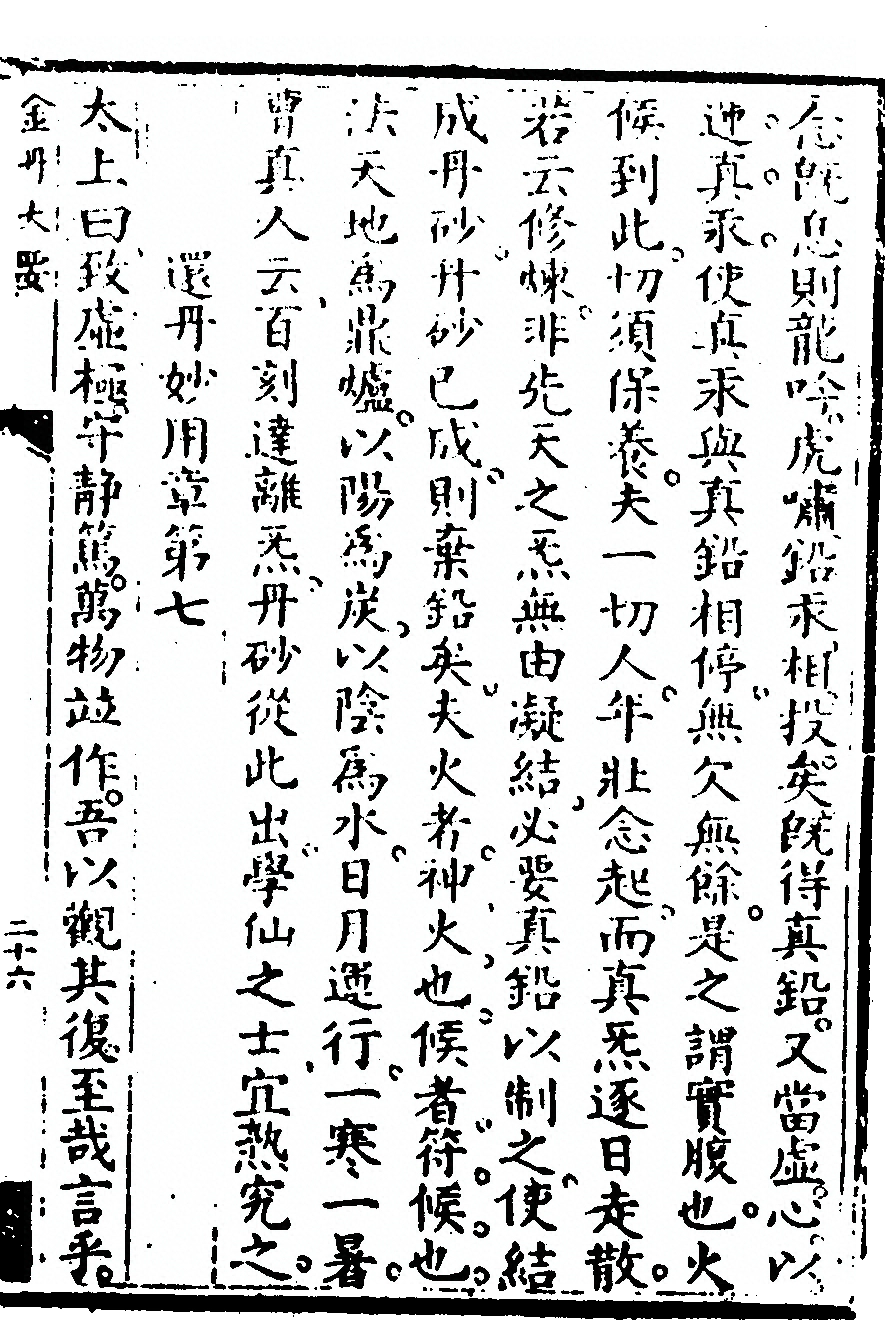 念既息則龍吟虎嘯鉛汞相投矣既得真鉛又當虛心以
迎真汞使真汞與真鉛相停無欠無餘是之謂實腹也火
候到此切須保養夫一切人年壯念起而真炁逐日走散
若云修煉非先天之炁無由凝結必要真鉛以制之使結
成丹砂丹砂已成則棄鉛矣夫火者神火也候者符候也
法天地為鼎爐以陽為炭以陰為水日月運行一寒一暑
曹真人云百刻達離炁丹砂從此出學仙之士宜熟究之
還丹妙用章第七
太上曰致虛極守靜篤萬物竝作吾以觀其復至哉言乎
金丹大要
二十六